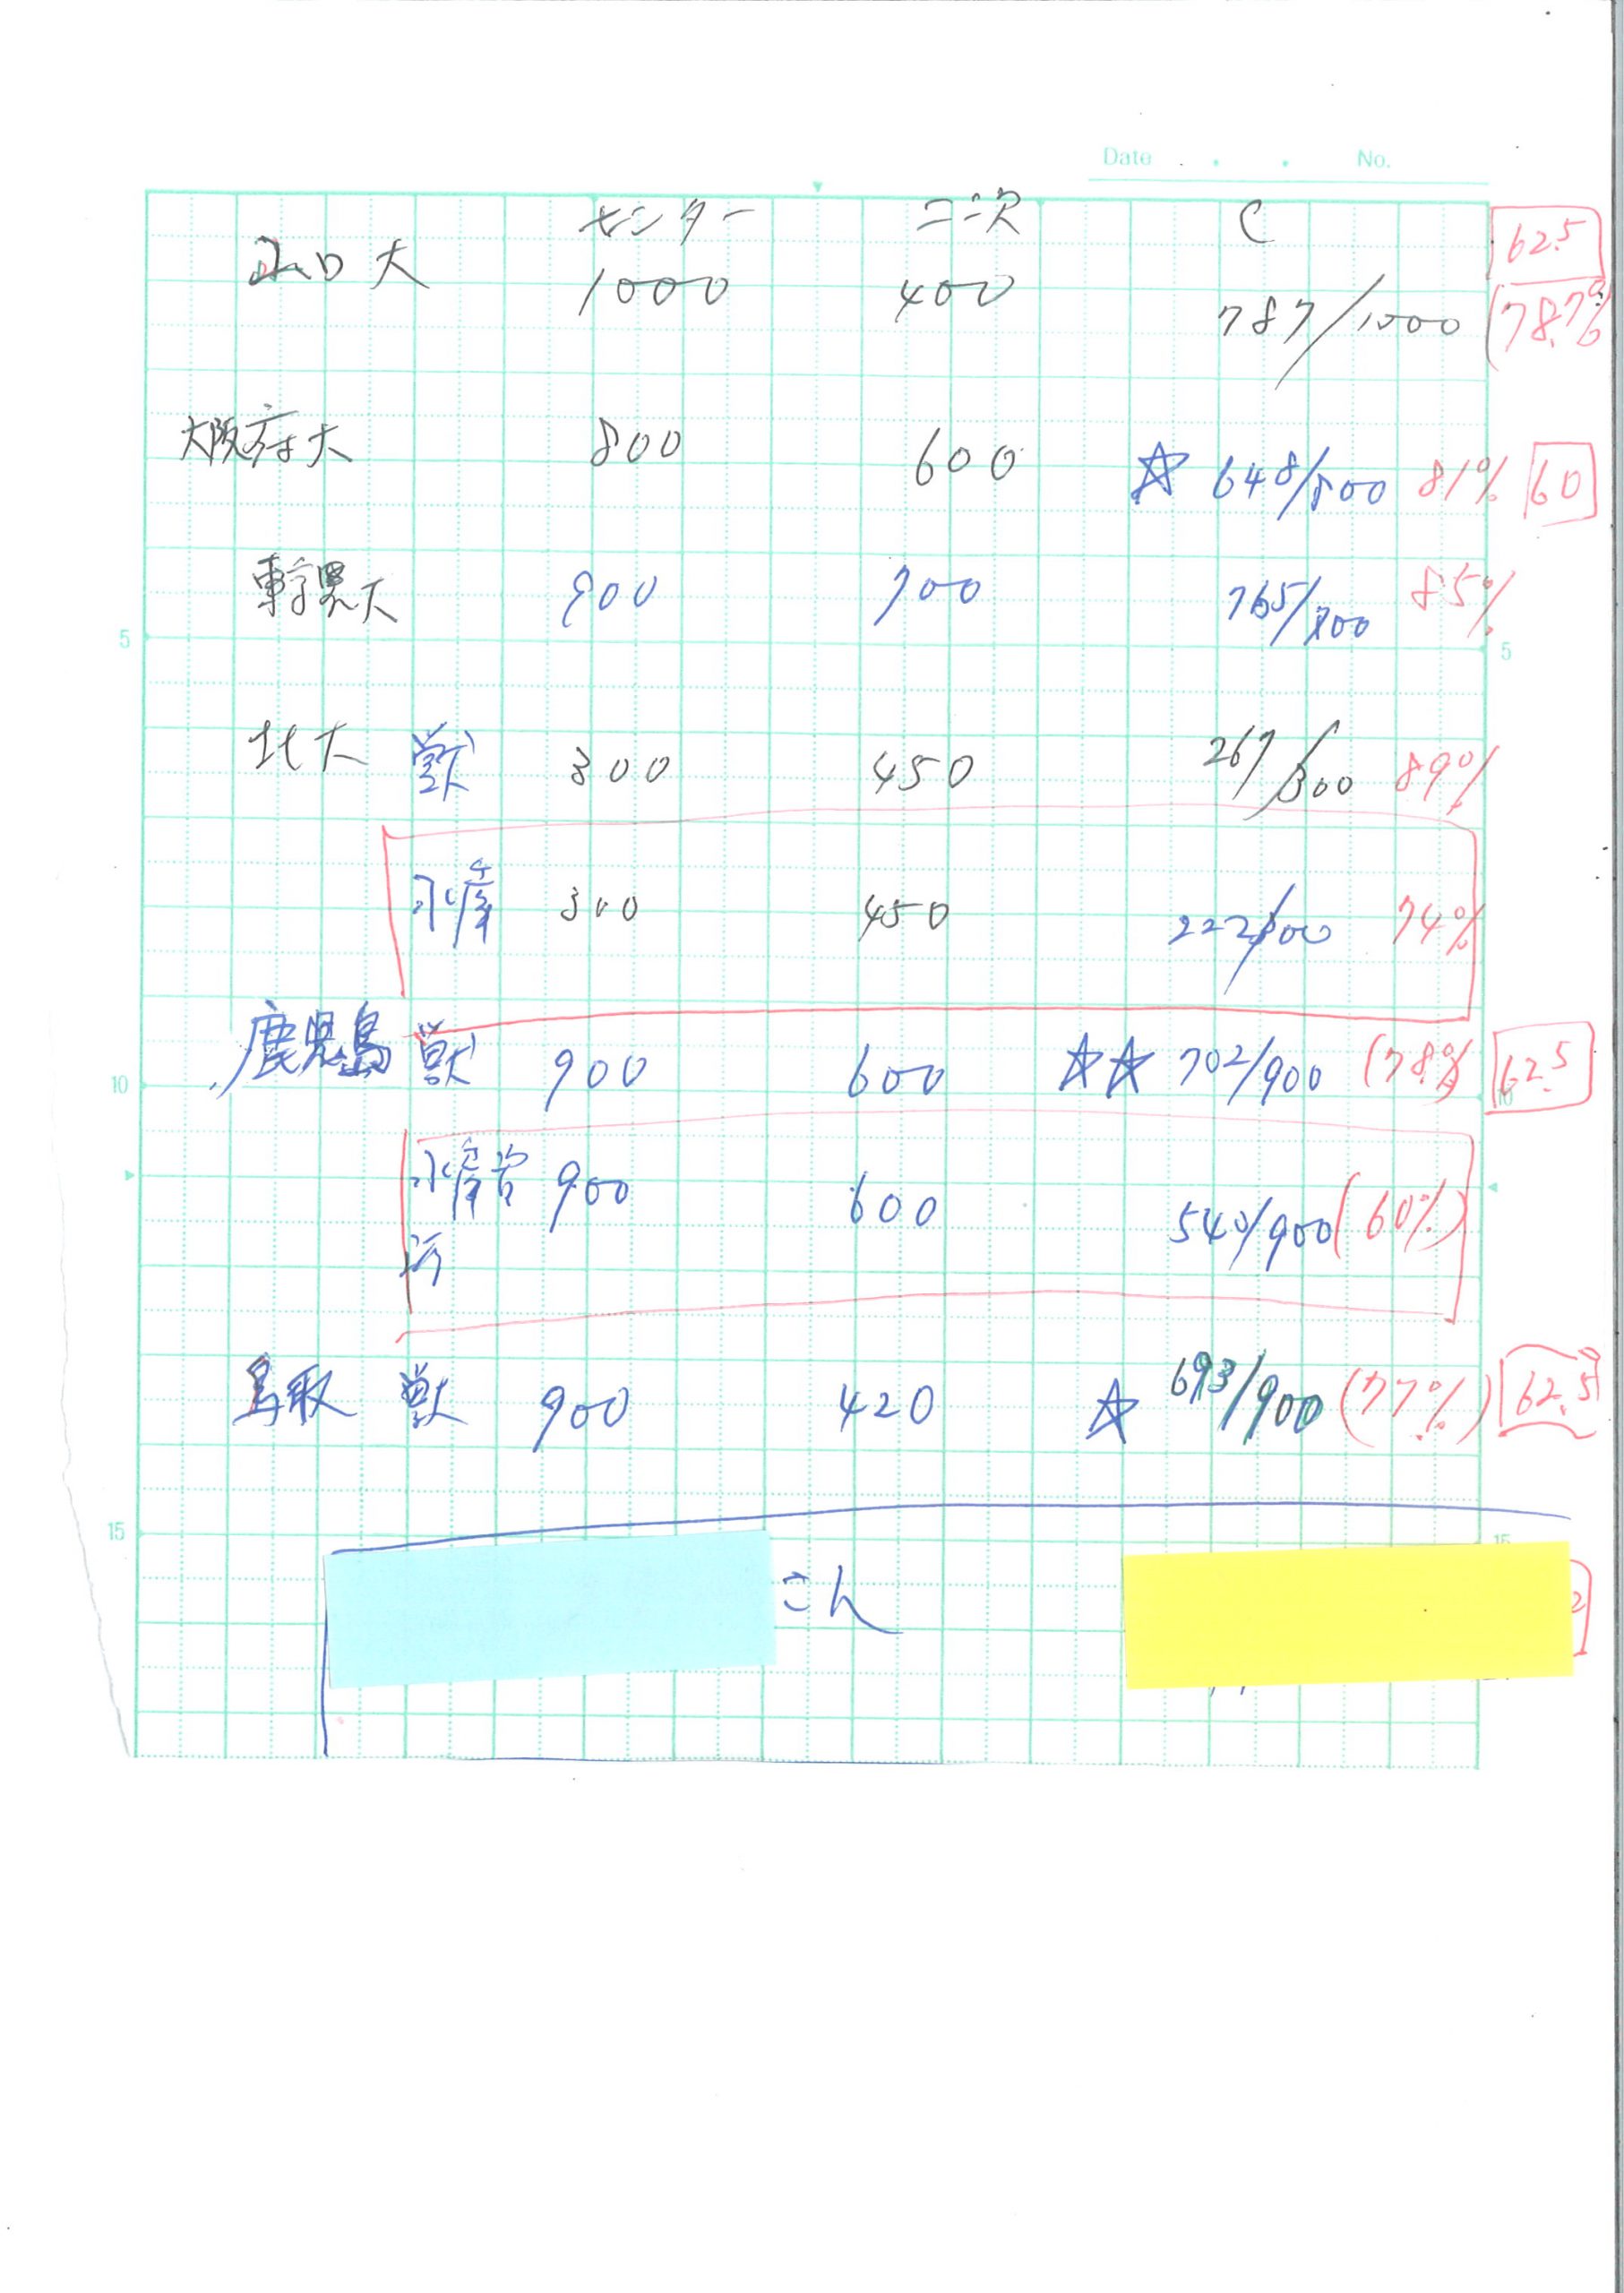 Date . . . No.
センター 二次 C 62.5
山口大 1000 400 787/1000 (78.7%
大阪府大 800 600 ☆ 648/800 81% 60
東京農大 900 700 765/900 85%
5 5
北大 獣 300 450 267/300 89%
水産 300 450 222/300 74%
鹿児島 獣 900 600 ☆☆ 702/900 (78%) 62.5
10 10
水産 900 600 540/900 (60%)
鳥取 獣 900 420 ☆ 693/900 (77%) 62.5
15 15
さん 2